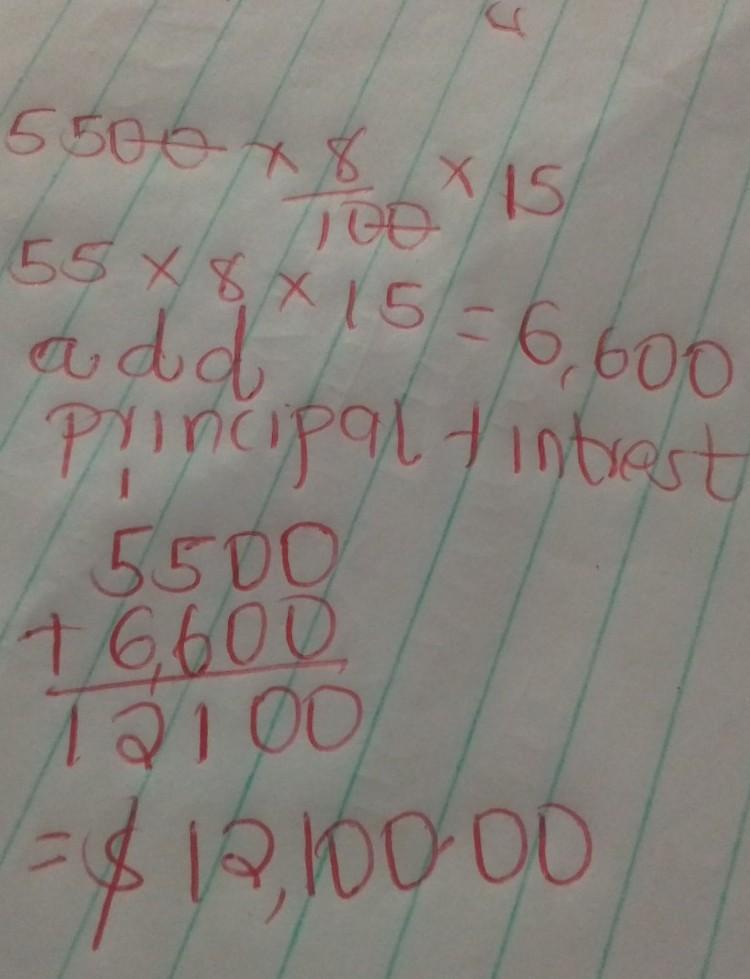 5500 × 8/100 × 15
55 × 8 × 15 = 6,600
add
principal + intrest
1
5500
+ 6,600
12100
= $ 12,100.00